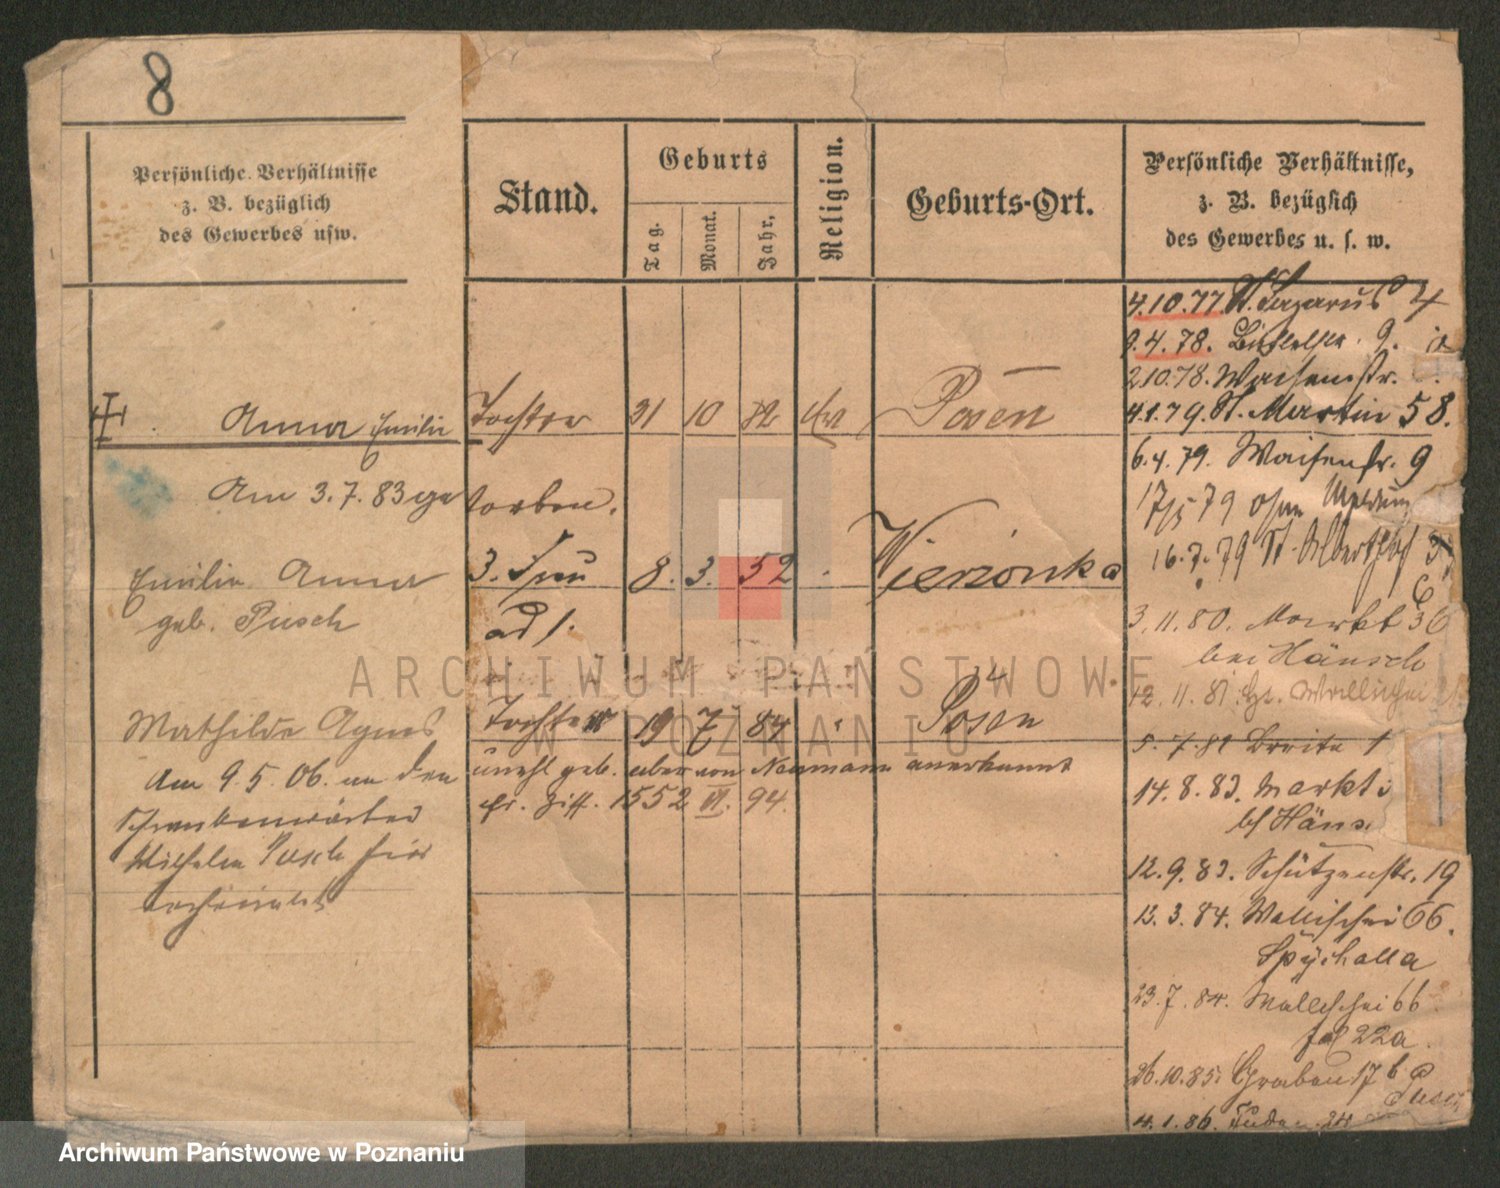 8
Persönliche Verhältnisse
z. B. bezüglich
des Gewerbes usw.
Stand.
Geburts
Tag.
Monat.
Jahr.
Religion.
Geburts-Ort.
Persönliche Verhältnisse,
z. B. bezüglich
des Gewerbes u. s. w.
Anna Emilie Tochter 31 10 82 Posen
Am 3.7.83 gestorben.
Emilie Anna 3. Frau 8. 3. 52 Wierzonka
geb. Pusch
Mathilde Agnes Tochter 19 7 84 Posen
unehl geb. aber von Naumann anerkannt
cfr. Ziff. 1552 VI. 94.
Am 9.5.06. an den
Wilhelm Pusch hier
4.10.77. St. Lazarus 4
9.4.78. 9.
2.10.78. Waisenstr.
4.1.79. St. Martin 58.
6.4.79. Waisenstr. 9
17/5 79 ohne Meldung
16.7.79 St. Adalbert
3.11.80. Markt 36
bei Hänsch
12.11.81. Wallischei
5.7.82 Breite 1
14.8.83. Markt
b/ Häns
12.9.83. Schützenstr. 19
13.3.84. Wallischei 66.
Spychalla
23.7.84. Wallischei 66
22a.
26.10.85. Graben 17 b
Pusch
4.1.86. 24
ARCHIWUM PAŃSTWOWE
W POZNANIU
Archiwum Państwowe w Poznaniu